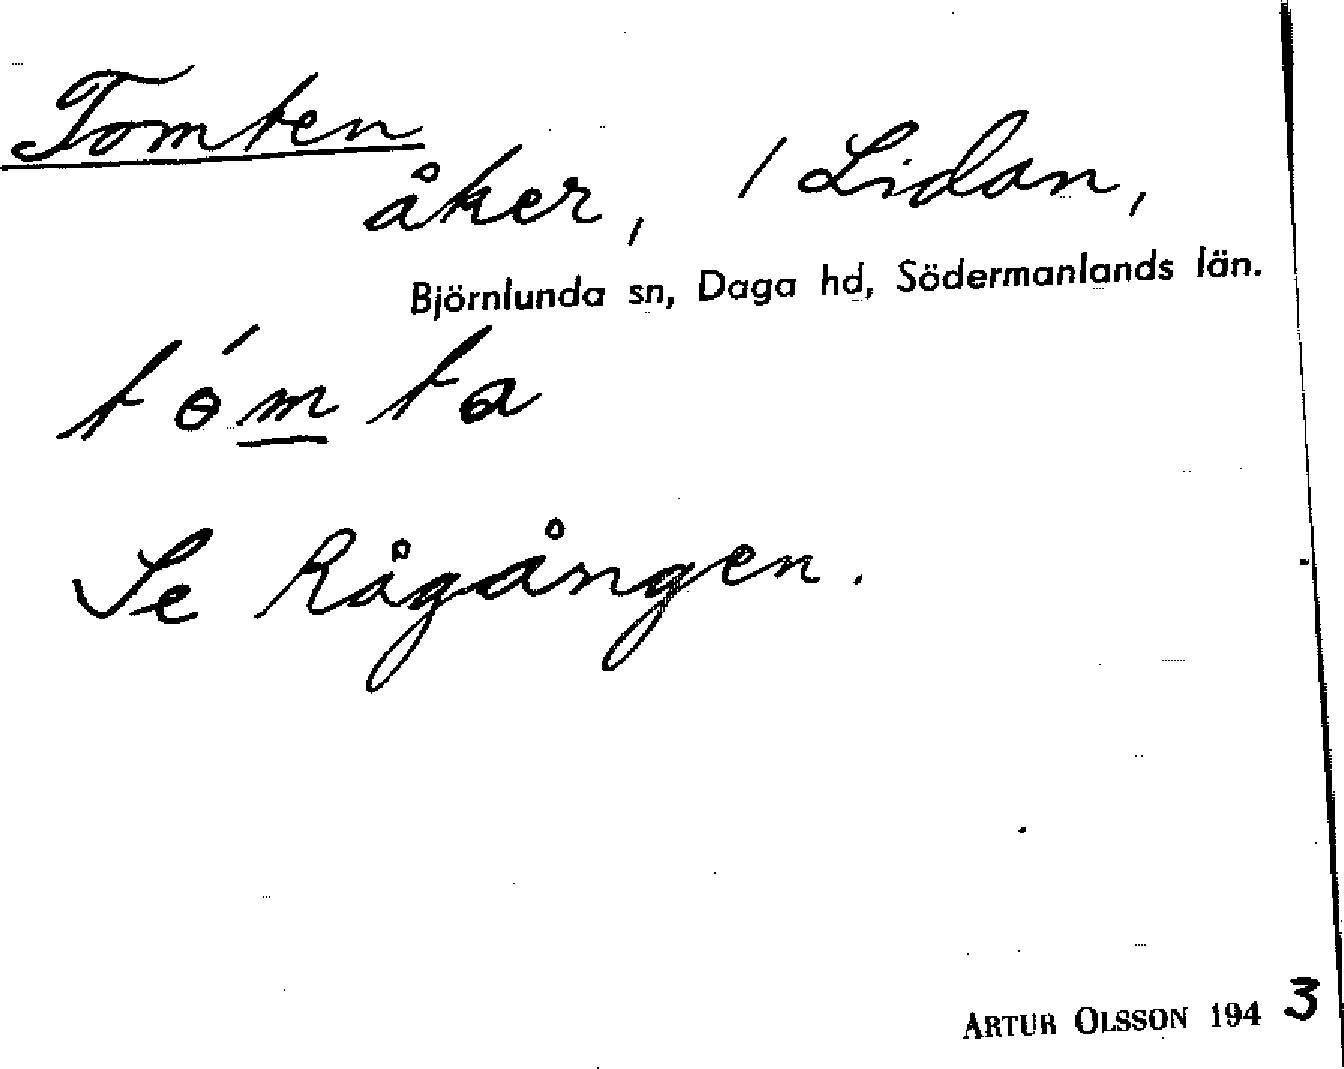 Tomten
åker, / Lidan,
Björnlunda sn, Daga hd, Södermanlands län.
tómta
Se Rågången.
ARTUR OLSSON 1943